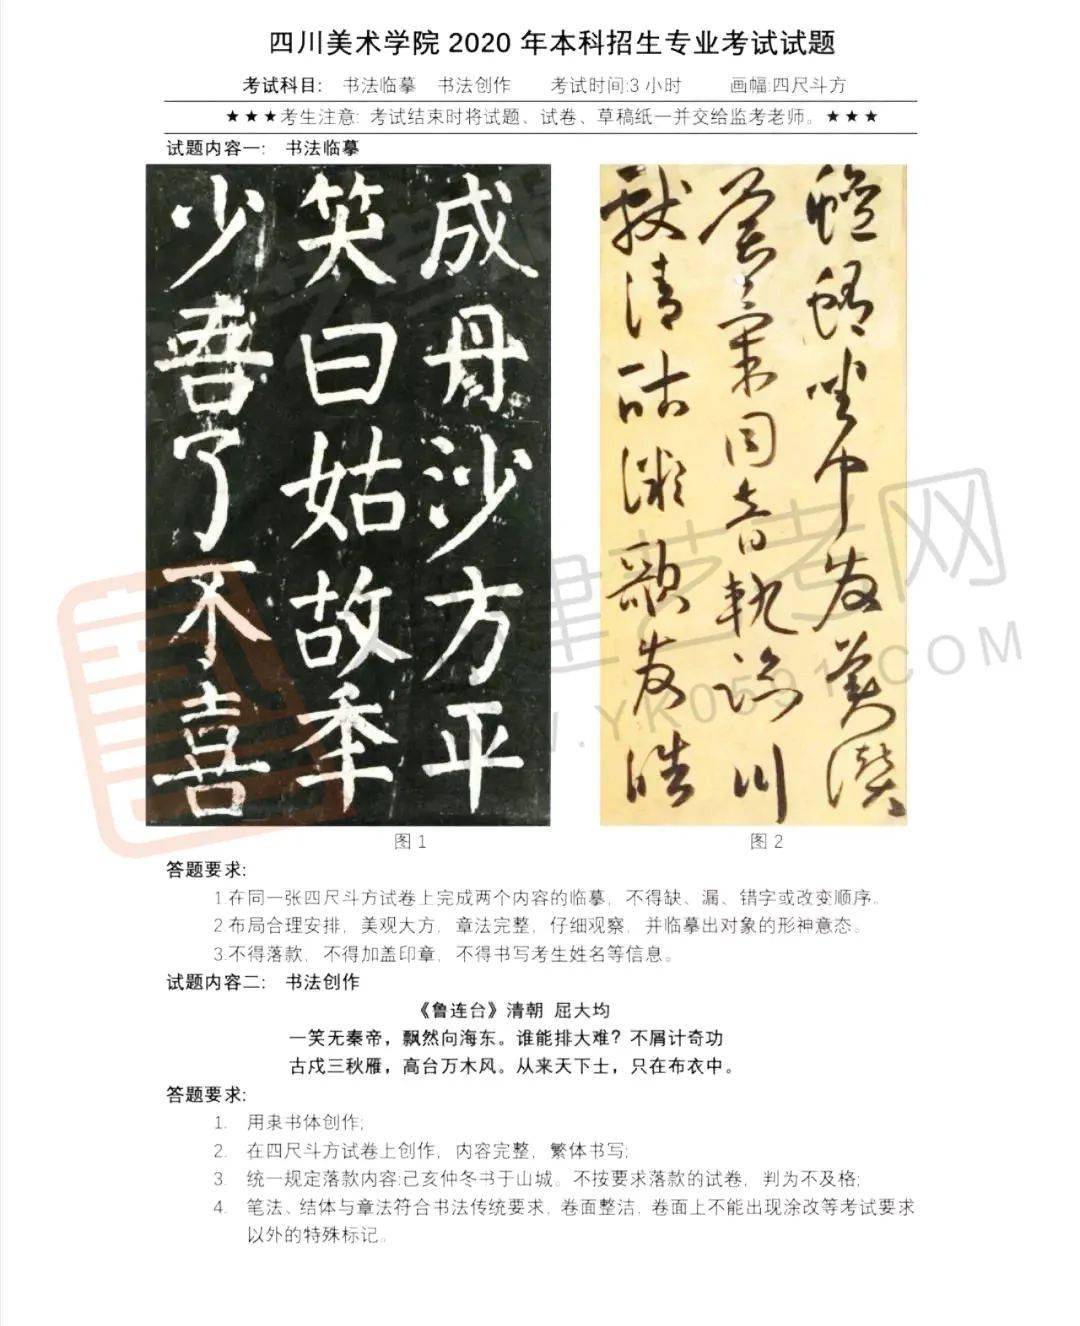 四川美术学院 2020 年本科招生专业考试试题
考试科目: 书法临摹 书法创作 考试时间:3 小时 画幅:四尺斗方
★★★考生注意: 考试结束时将试题、试卷、草稿纸一并交给监考老师。★★★
试题内容一: 书法临摹
成丹沙方平
笑曰姑故秊
少吾了不喜
图 1
图 2
建艺考网
W.YK0591.COM
答题要求:
1.在同一张四尺斗方试卷上完成两个内容的临摹，不得缺、漏、错字或改变顺序。
2.布局合理安排，美观大方，章法完整，仔细观察，并临摹出对象的形神意态。
3.不得落款，不得加盖印章，不得书写考生姓名等信息。
试题内容二: 书法创作
《鲁连台》清朝 屈大均
一笑无秦帝，飘然向海东。谁能排大难？不屑计奇功
古戍三秋雁，高台万木风。从来天下士，只在布衣中。
答题要求:
1. 用隶书体创作;
2. 在四尺斗方试卷上创作，内容完整，繁体书写;
3. 统一规定落款内容:己亥仲冬书于山城。不按要求落款的试卷，判为不及格;
4. 笔法、结体与章法符合书法传统要求，卷面整洁，卷面上不能出现涂改等考试要求
以外的特殊标记。